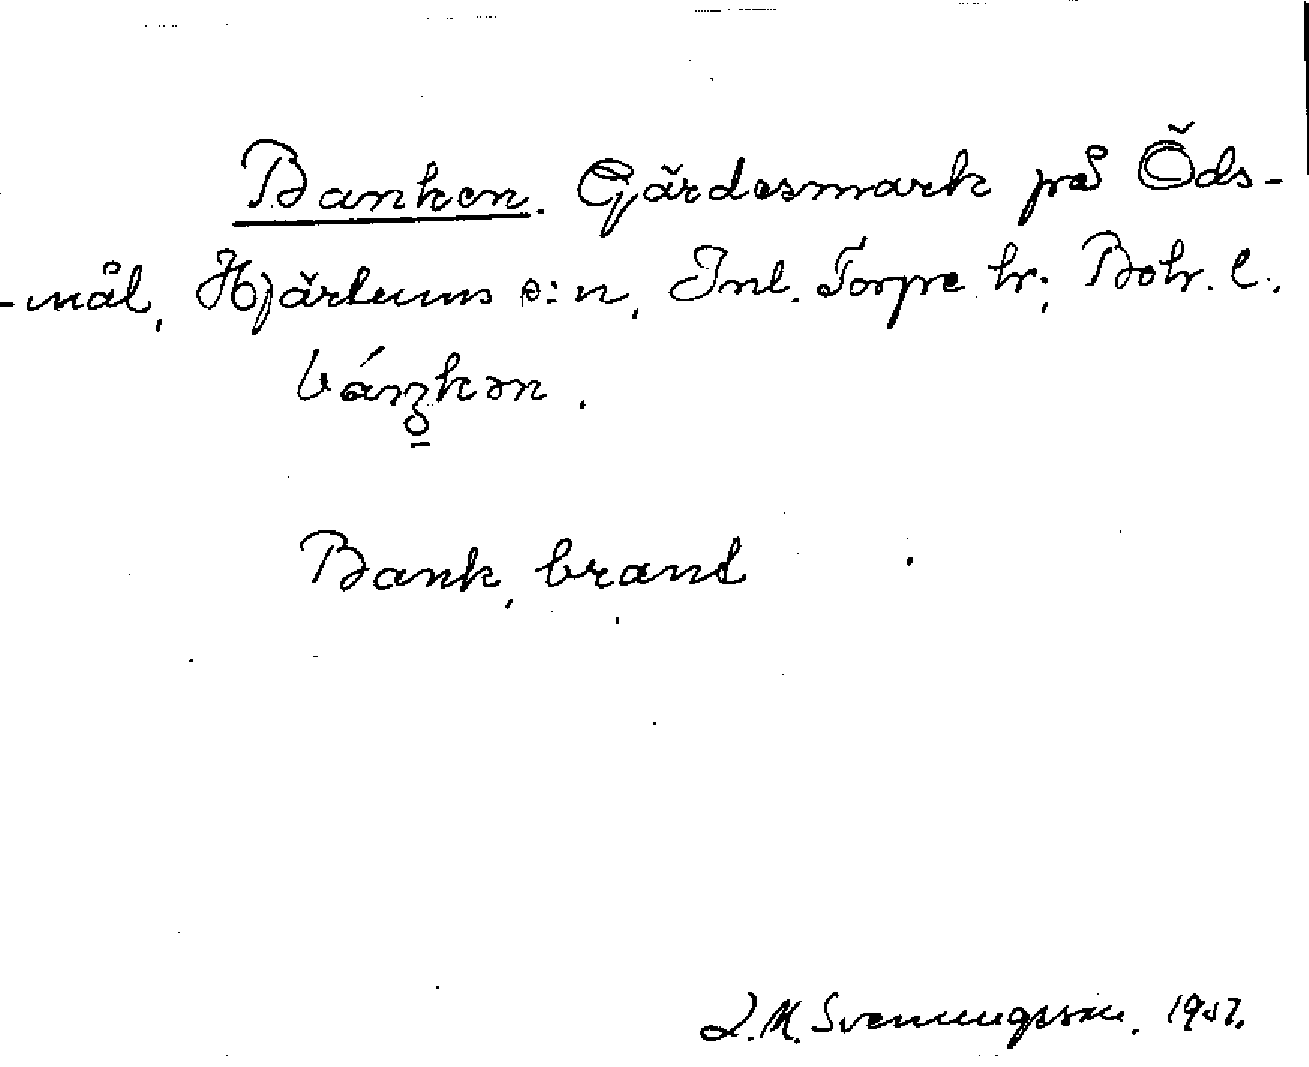 Banken. Gärdesmark på Öds-
-mål, Hjärtums s:n, Inl. Torpe hr; Boh. l.
Bank, brant
J. M. Svenungsson. 1957.